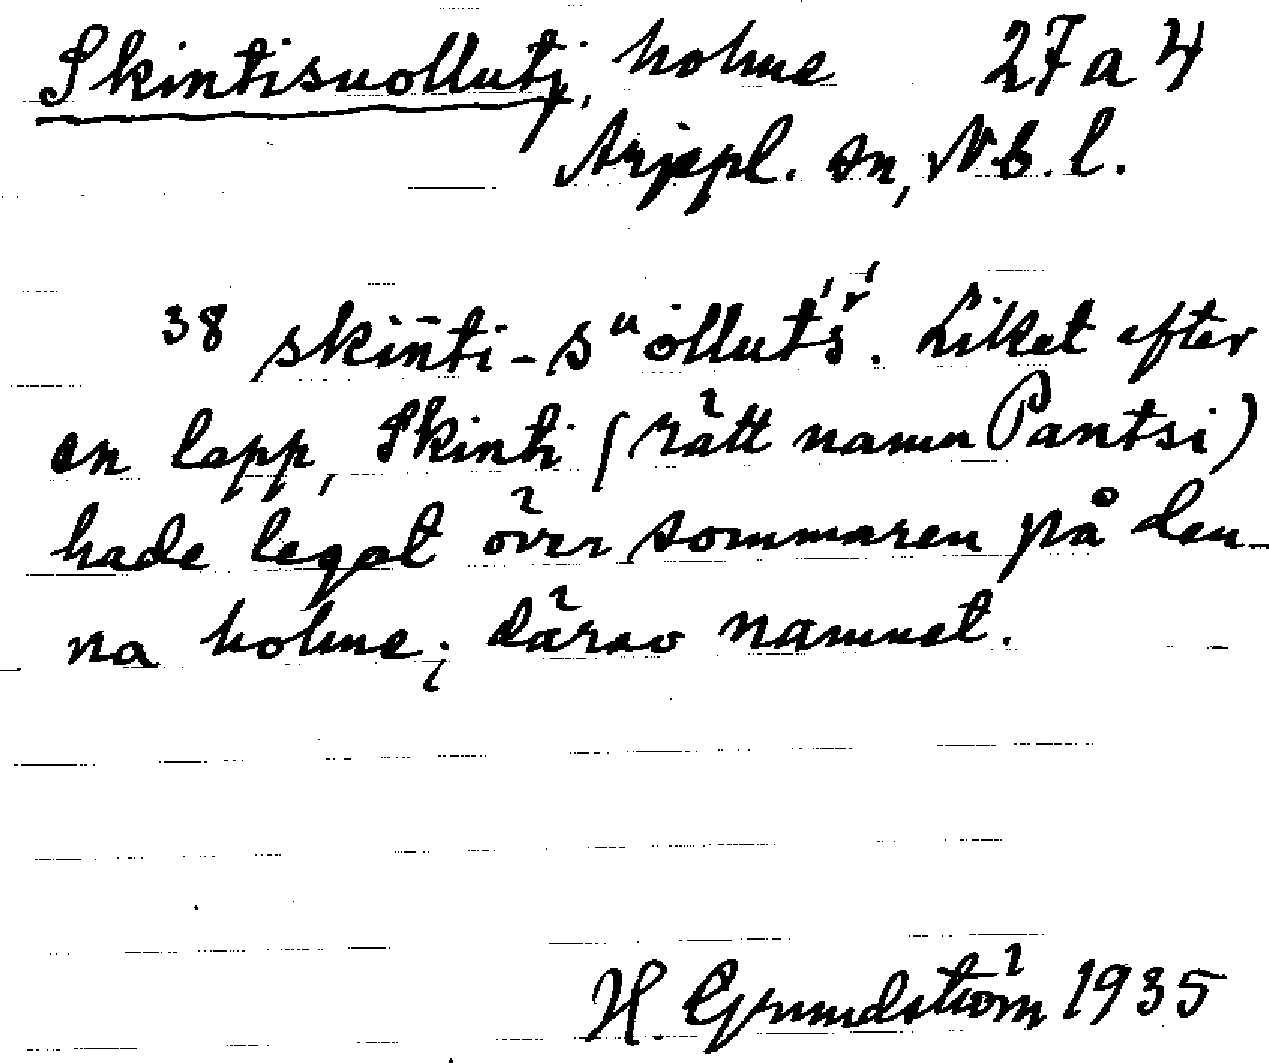 Skintisuollutj, holme 27a4
Arjepl. sn, Nb. l.
38 skinti-suolluts. Liket efter
en lapp, Skinti (rätt namn Pantsi)
hade legat över sommaren på den-
na holme; därav namnet.
H. Grundström 1935